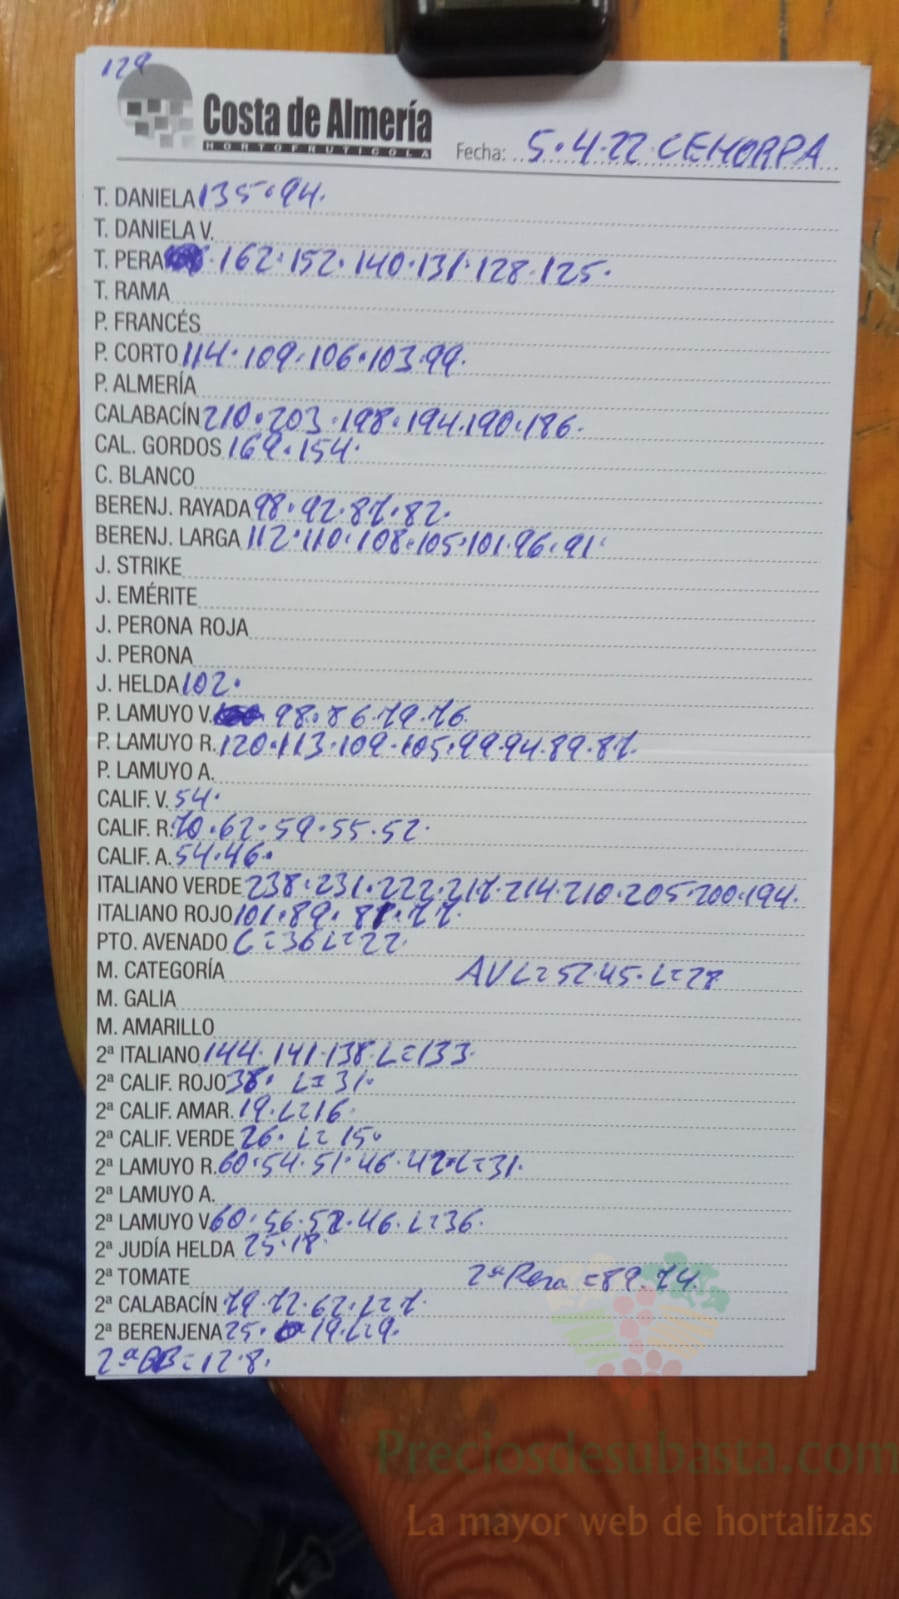 129
Costa de Almería
HORTOFRUTICOLA
Fecha: 5.4.22 CEHORPA
T. DANIELA 135.94.
T. DANIELA V.
T. PERA 162.152.140.131.128.125.
T. RAMA
P. FRANCÉS
P. CORTO 114.109.106.103.99.
P. ALMERÍA
CALABACÍN 210.203.198.194.190.186.
CAL. GORDOS 169.154.
C. BLANCO
BERENJ. RAYADA 98.92.87.82.
BERENJ. LARGA 112.110.108.105.101.96.91.
J. STRIKE
J. EMÉRITE
J. PERONA ROJA
J. PERONA
J. HELDA 102.
P. LAMUYO V. 98.86.79.76.
P. LAMUYO R. 120.113.109.105.99.94.89.87.
P. LAMUYO A.
CALIF. V. 54.
CALIF. R. 70.62.59.55.52.
CALIF. A. 54.46.
ITALIANO VERDE 238.231.222.217.214.210.205.200.194.
ITALIANO ROJO 101.89.81.77.
PTO. AVENADO C=36 L=22.
M. CATEGORÍA AV L=52.45.L=28
M. GALIA
M. AMARILLO
2ª ITALIANO 144.141.138.L=133.
2ª CALIF. ROJO 38. L=31.
2ª CALIF. AMAR. 19.L=16.
2ª CALIF. VERDE 26. L=15.
2ª LAMUYO R. 60.54.51.46.42.L=31.
2ª LAMUYO A.
2ª LAMUYO V. 60.56.52.46.L=36.
2ª JUDÍA HELDA 25.18.
2ª TOMATE 2ª Pera =89.74.
2ª CALABACÍN 79.72.62.L=7.
2ª BERENJENA 25. 19.L=9.
2ª GB=12.8.
Preciosdesubasta.com
La mayor web de hortalizas